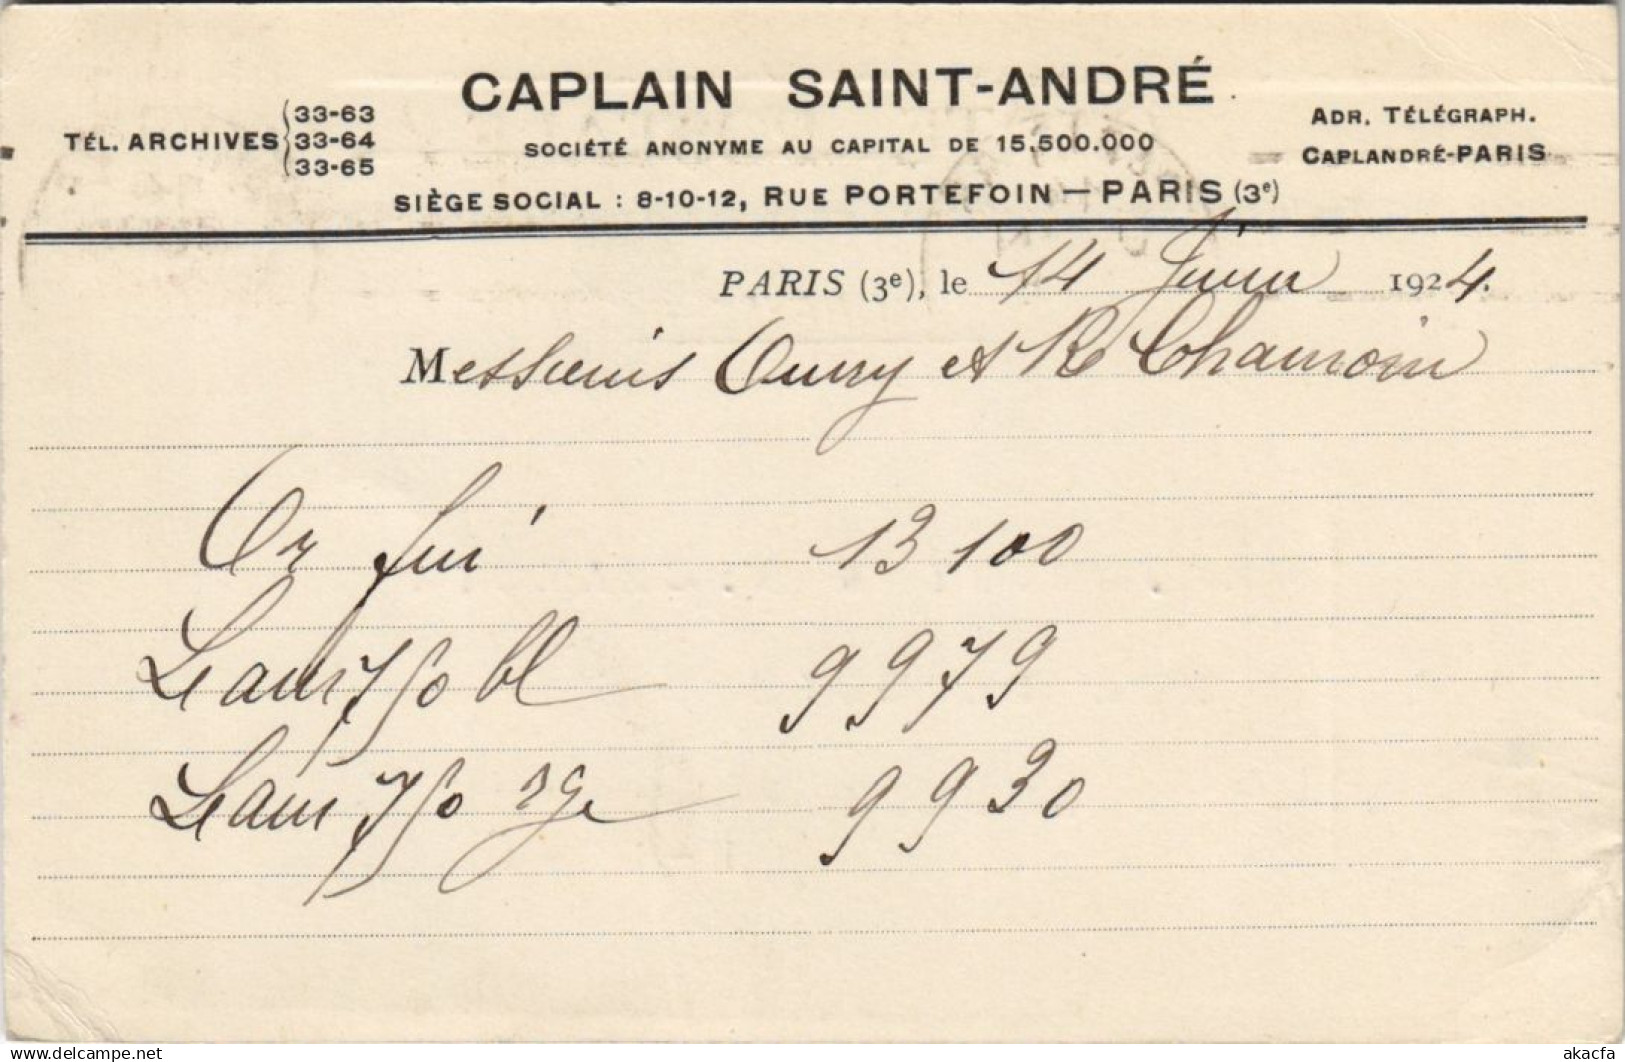 CAPLAIN SAINT-ANDRÉ
TÉL. ARCHIVES 33-63
33-64
33-65
SOCIÉTÉ ANONYME AU CAPITAL DE 15.500.000
SIÈGE SOCIAL : 8-10-12, RUE PORTEFOIN — PARIS (3e)
ADR. TÉLÉGRAPH.
CAPLANDRÉ-PARIS
PARIS (3e), le 14 Juin 1924.
Messieurs et Chamoin
Or fin 13 100
750 bl 9979
750 rge 9930
delcampe.net
akacfa